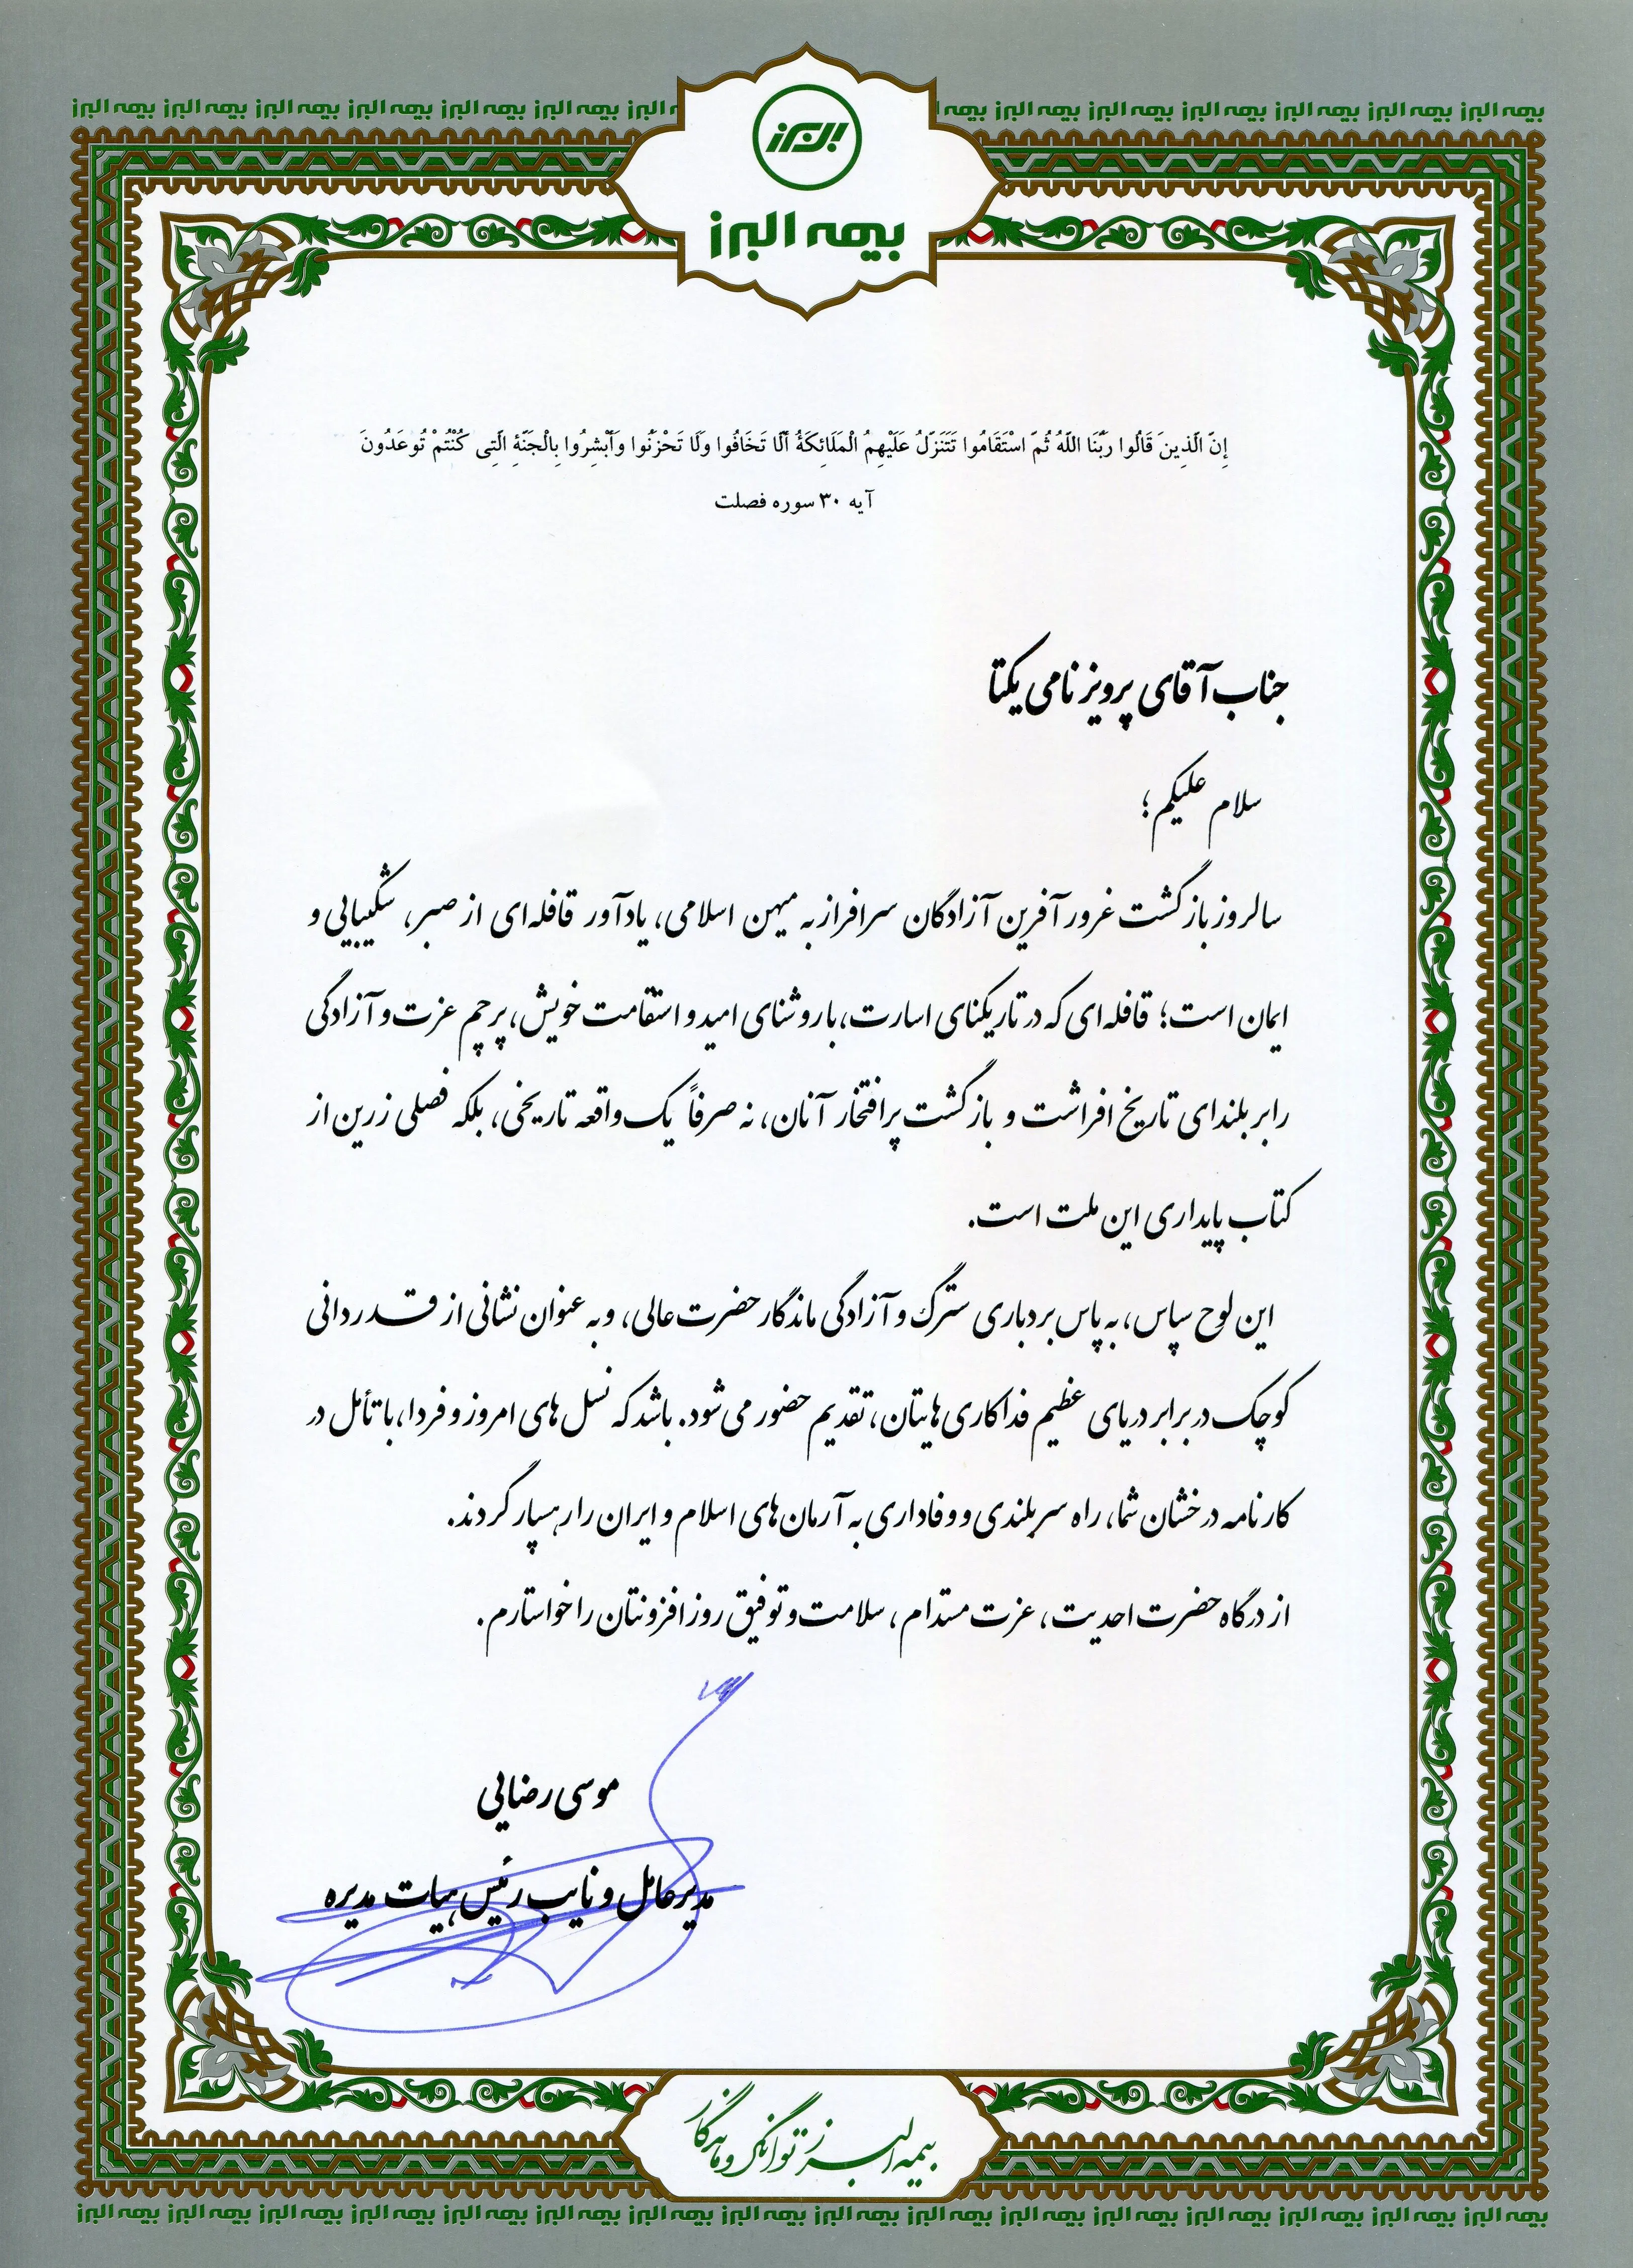 بیمه البرز بیمه البرز بیمه البرز بیمه البرز بیمه البرز بیمه البرز بیمه البرز بیمه البرز بیمه البرز بیمه البرز بیمه البرز بیمه البرز بیمه البرز
البرز
بیمه البرز
إِنَّ الَّذِينَ قَالُوا رَبُّنَا اللَّهُ ثُمَّ اسْتَقَامُوا تَتَنَزَّلُ عَلَيْهِمُ الْمَلَائِكَةُ أَلَّا تَخَافُوا وَلَا تَحْزَنُوا وَأَبْشِرُوا بِالْجَنَّةِ الَّتِی كُنْتُمْ تُوعَدُونَ
آیه ۳۰ سوره فصلت
جناب آقای پرویز نامی یکتا
سلام علیکم؛
سالروز بازگشت غرورآفرین آزادگان سرافراز به میهن اسلامی، یادآور قافله‌ای از صبر، شکیبایی و
ایمان است؛ قافله‌ای که در تاریکنای اسارت، با روشنای امید و استقامت خویش، پرچم عزت و آزادگی
را بر بلندای تاریخ افراشت و بازگشت پرافتخار آنان، نه صرفاً یک واقعه تاریخی، بلکه فصلی زرین از
کتاب پایداری این ملت است.
این لوح سپاس، به پاس بردباری سترگ و آزادگی ماندگار حضرت عالی، و به عنوان نشانی از قدردانی
کوچک در برابر دریای عظیم فداکاری‌هایتان، تقدیم حضور می‌شود. باشد که نسل‌های امروز و فردا، با تأمل در
کارنامه درخشان شما، راه سربلندی و وفاداری به آرمان‌های اسلام و ایران را رهسپار گردند.
از درگاه حضرت احدیت، عزت مستدام، سلامت و توفیق روزافزونتان را خواستارم.
موسی رضایی
مدیرعامل و نایب رئیس هیات مدیره
بیمه البرز توانگر و ماندگار
بیمه البرز بیمه البرز بیمه البرز بیمه البرز بیمه البرز بیمه البرز بیمه البرز بیمه البرز بیمه البرز بیمه البرز بیمه البرز بیمه البرز بیمه البرز بیمه البرز بیمه البرز بیمه البرز